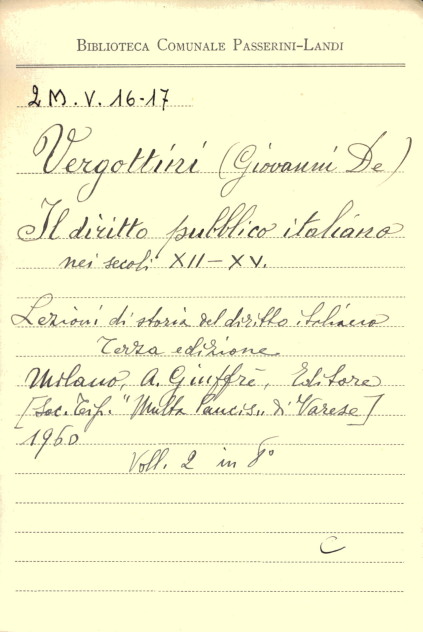 BIBLIOTECA COMUNALE PASSERINI-LANDI
2 M. V. 16-17
Vergottini (Giovanni De)
Il diritto pubblico italiano
nei secoli XII-XV.
Lezioni di storia del diritto italiano
Terza edizione
Milano, A. Giuffrè, Editore
[Soc. Tip. "Multa Paucis" di Varese]
1960
Voll. 2 in 8°
C